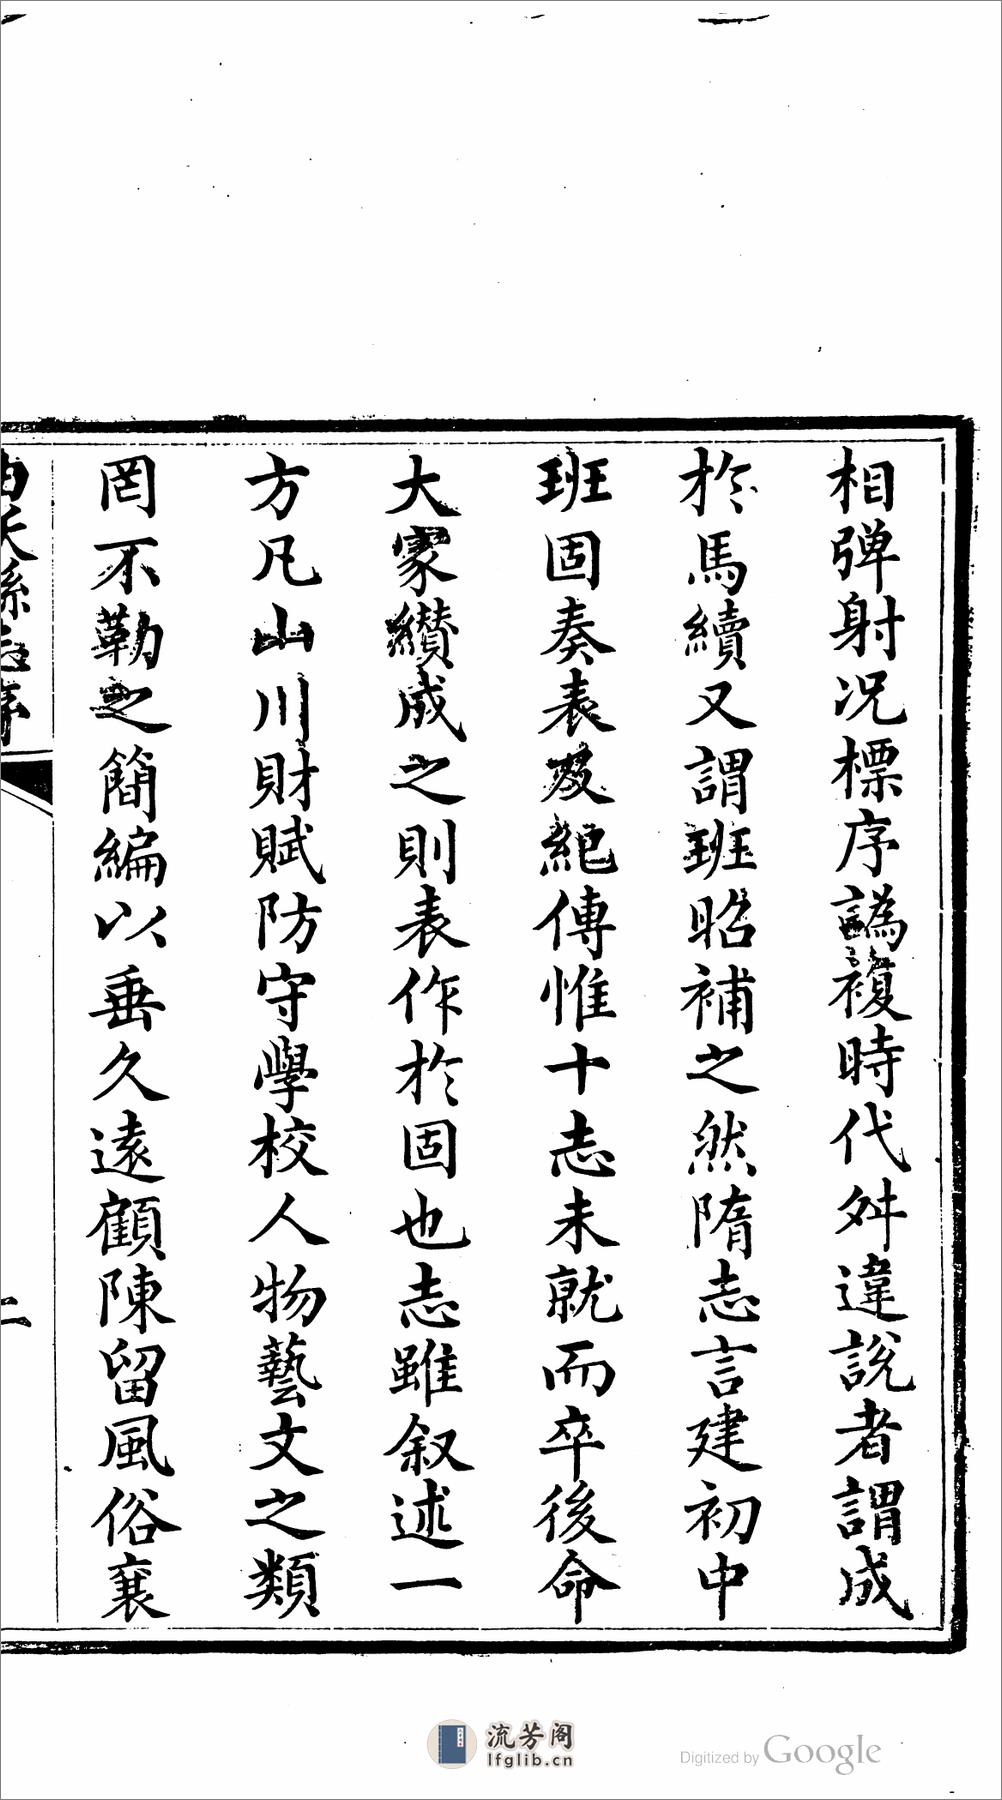 相彈射况標序譌複時代舛違說者謂成
於馬續又謂班昭補之然隋志言建初中
班固奏表及紀傳惟十志未就而卒後命
大家纘成之則表作於固也志雖叙述一
方凡山川財賦防守學校人物藝文之類
罔不勒之簡編以垂久遠顧陳留風俗襄
曲沃縣志序
二
流芳阁
lfglib.cn
Digitized by Google